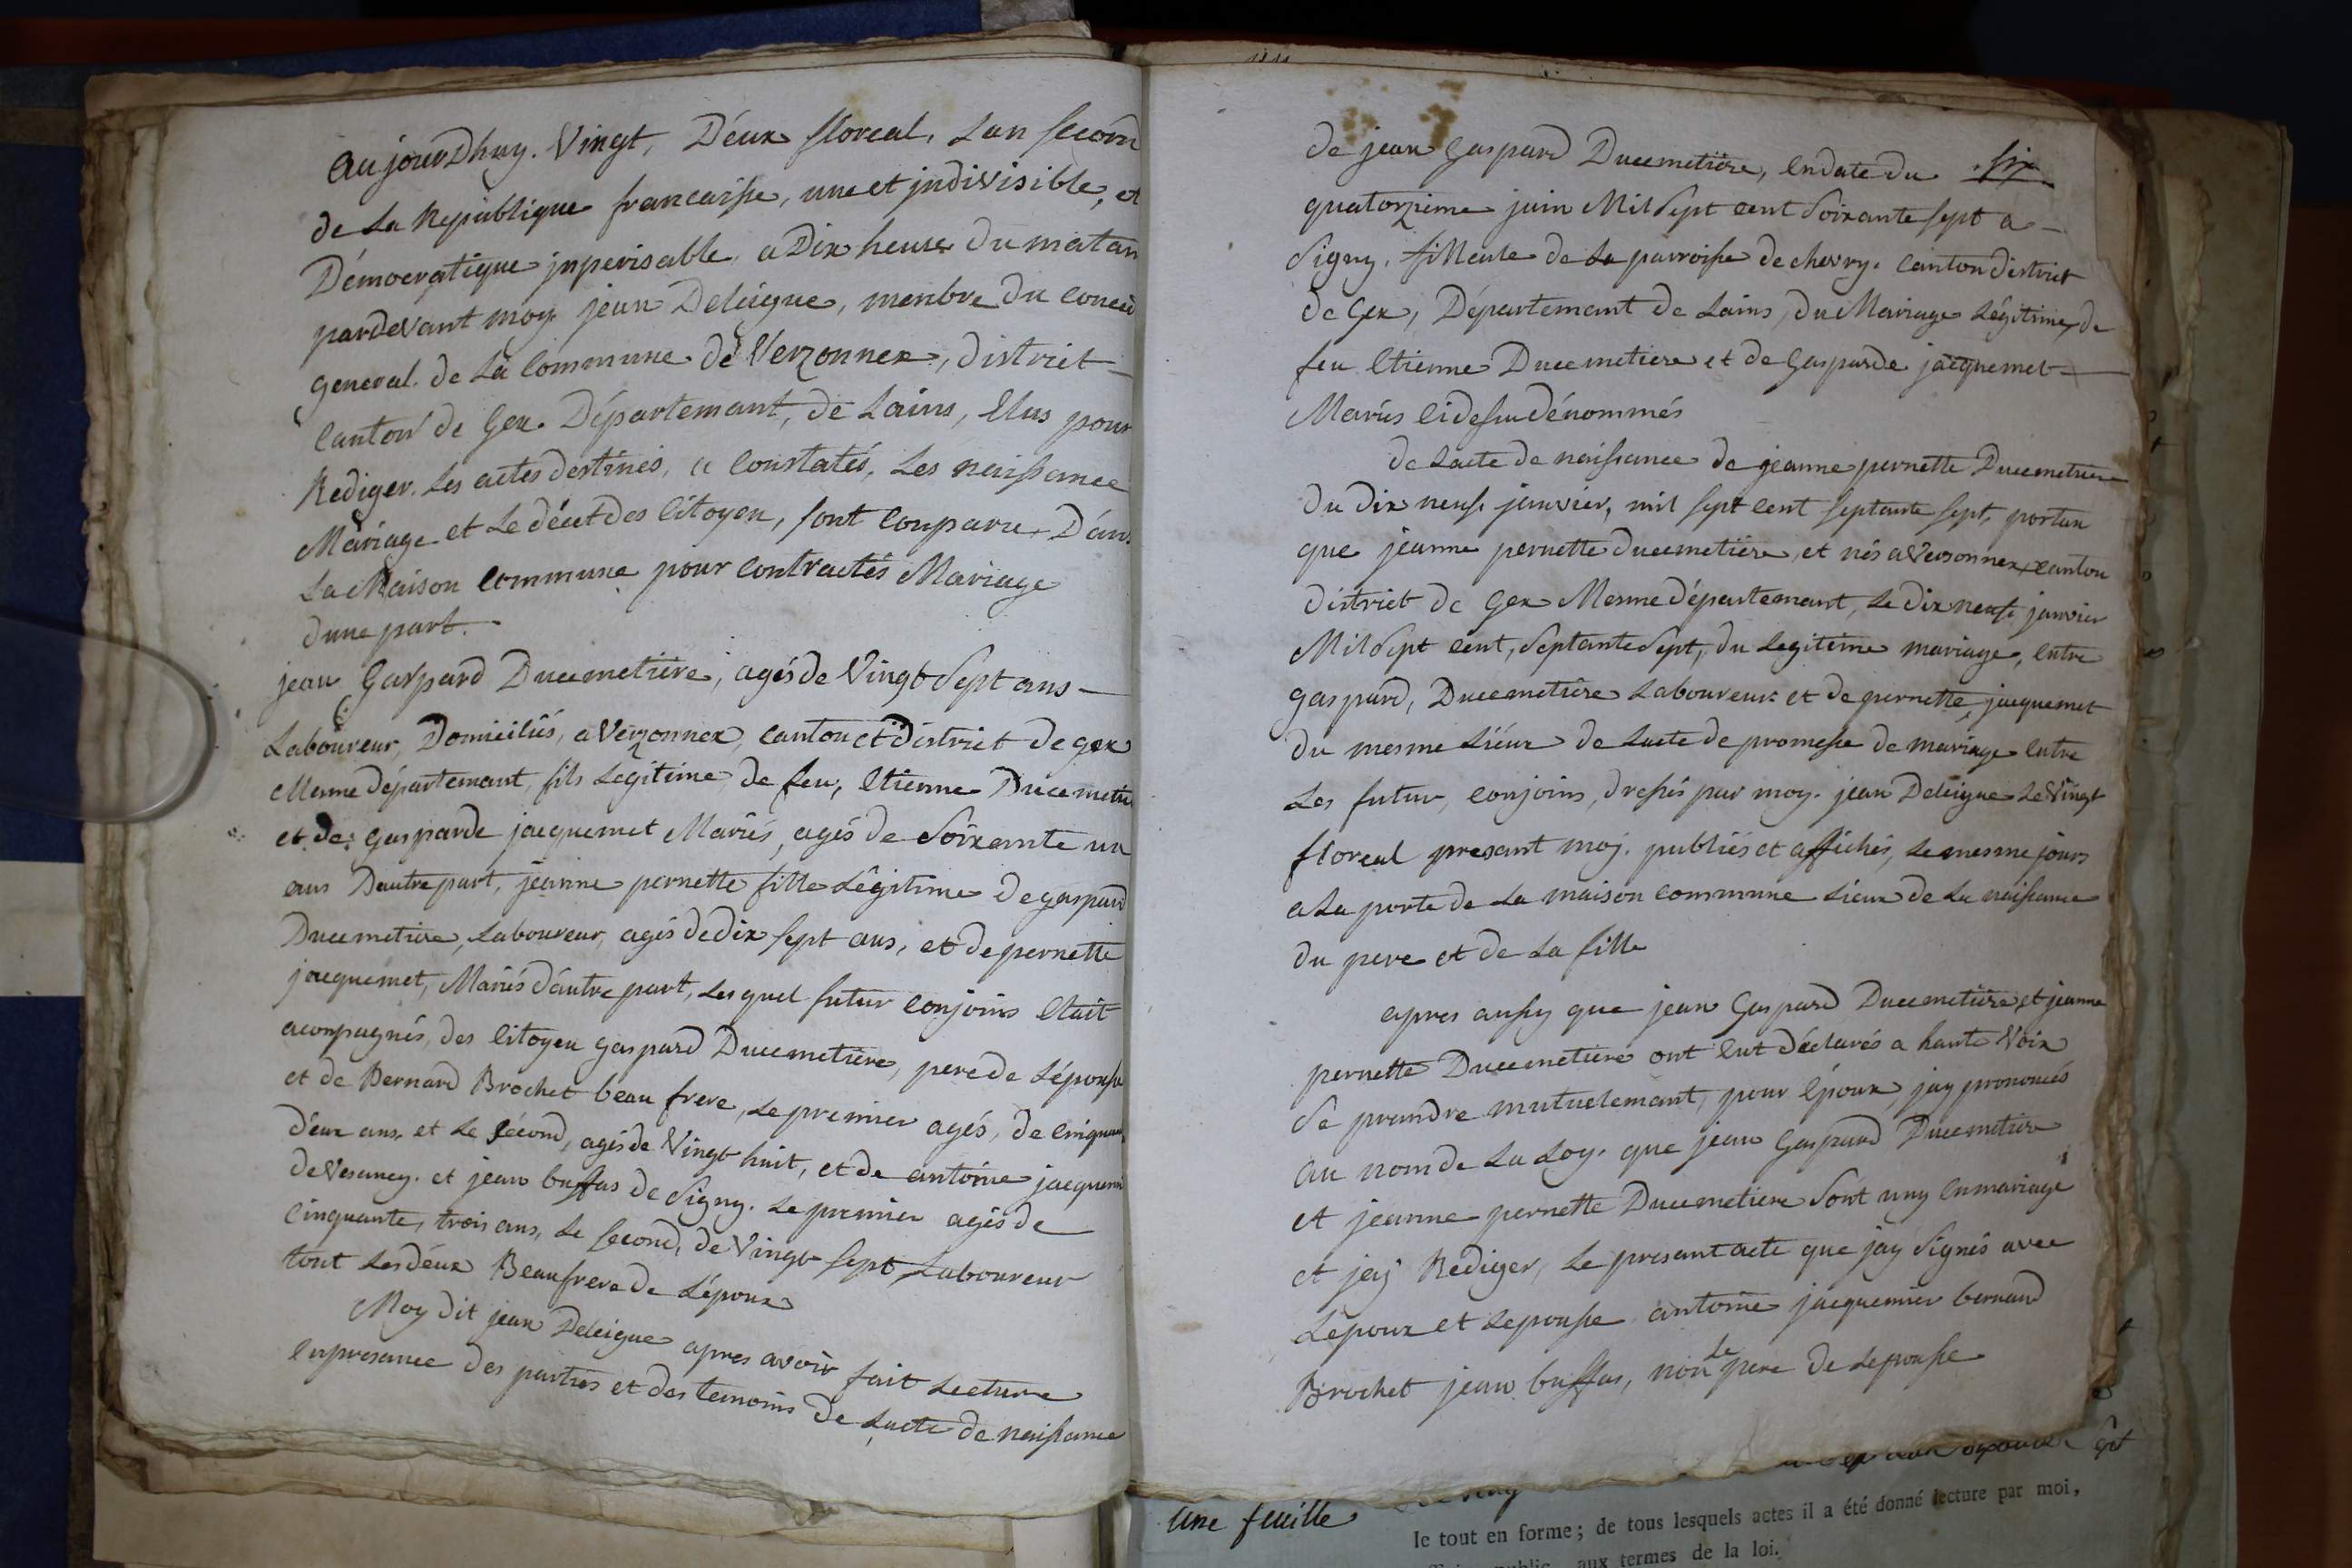 aujourdhuy. Vingt, Déux floreal, Lan second
de La Republique francaisse, une et jndivisible, et
Démocratique jnperisable, a Dix heure du matan
pardevant moy jean Deleigue, menbre du conceil
general. de La Commune de Verzonnex, district
canton de Gex. Département, de Lains, Elus pour
Rediger. Les actes destinés, a Constatés, Les naissance
Mariage et Le décet des Citoyen, sont Conparu Dans
La Maison Commune pour Contractés Mariage
dune part.
jean Gaspard Ducemetière, agés de Vingt Sept ans
Laboureur, Domiciliés, a Verzonnex, canton et district de gex
Mesme département, fils Legitime de feu, Etienne Ducemetie
et de gasparde jacquemet Mariés, agés de Soixante un
ans Dautre part, jeanne pernette fille Légitime de gaspard
Ducemetiere, Laboureur, agés de dix sept ans, et de pernette
jacquemet, Mariés dautre part, Lesquel futur conjoins Etait
aconpagnés, des Citoyen gaspard Ducemetiere, pere de Lépousse
et de Bernard Brochet beau frere, Le premier agés, de Cinquan
déux ans, et Le sécond, agés de Vingt huit, et de antoine jacquemi
de Vesancy. et jean buffas de Signy. Le premier agés de
Cinquante, trois ans, Le second, de Vingt sept Laboureur
tout Les déux Beaufrere de Lépoux
Moy dit jean Deleigue apres avoir fait Lecture
Enpresance des parties et des temoins de Lacte de naissance
de jean Gaspard Ducemetière, En date du six
quatorzieme juin Mil Sept cent Soixante sept a
Signy, filleule de La parroisse de chevry. canton district
de Gex, Département de Lains, du Mariage Légitime, de
feu Etienne Ducemetiere et de Gasparde jacquemet
Mariés Cidessu dénommés
de Lacte de naissance de jeanne pernette Ducemetiere
du dix neuf. janvier, mil sept cent septante sept, portan
que jeanne pernette ducemetiere, et nés a Versonnex, canton
district de Gex Mesme département, Le dix neuf janvier
Mil Sept cent, Septante Sept, du Legitime mariage, Entre
gaspard, Ducemetière Laboureur et de pernette, jacquemet
du mesme Liéux de Lacte de promesse de mariage Entre
Les futur, conjoins, dressés par moy. jean Deleigue Le Vingt
floreal presant moy. publiés et affichés, Le mesme jours
a La porte de La maison commune Lieux de La naissance
du pere et de La fille
apres aussy que jean Gaspard Ducemetière, et jeanne
pernette Ducemetiere ont Eut déclarés a haute Voix
Se prandre mutuelemant, pour Epoux, jay prononcés
au nom de La Loy. que jean Gaspard Ducemetiere
et jeanne pernette Ducemetiere Sont uny En mariage
et jay Rediger, Le presant acte que jay Signés avec
Lepoux et Lepousse antoine jacquemier bernard
Brochet jean buffas, non Le pere de Lepousse
Une feuille
le tout en forme ; de tous lesquels actes il a été donné lecture par moi,
public aux termes de la loi.